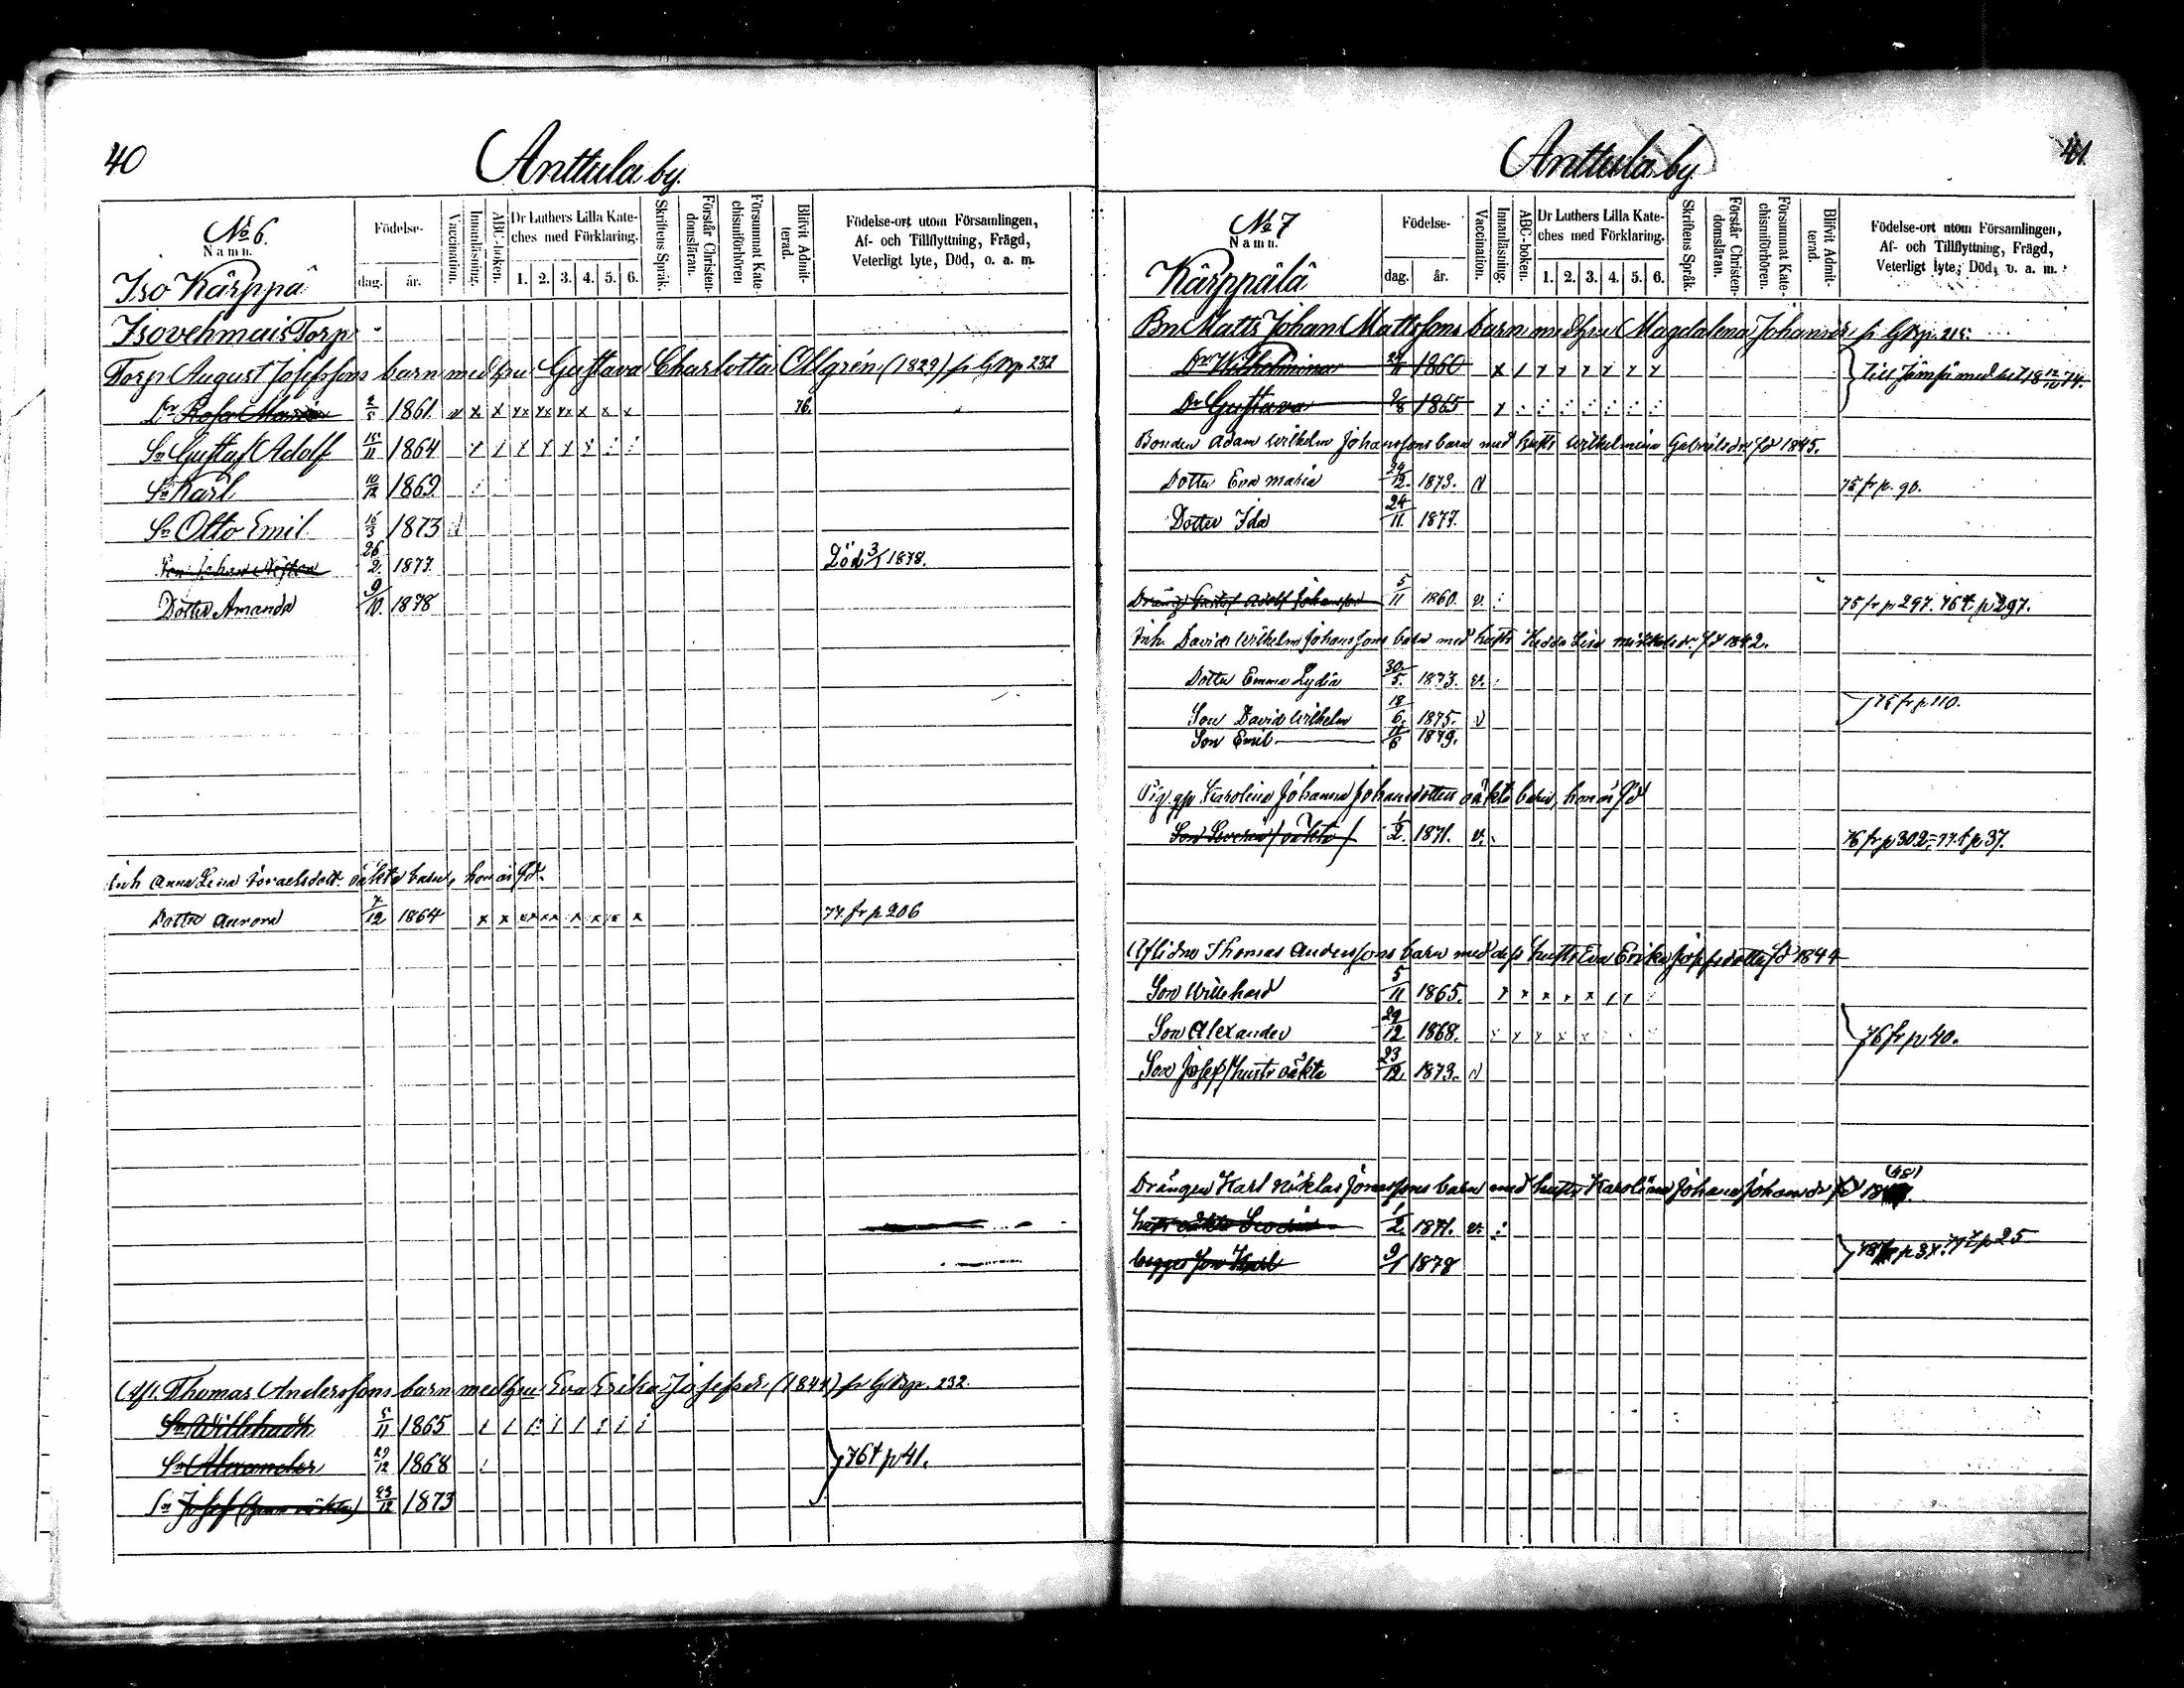 40
Anttula by.
No 6.
Namn.
Iso Kärppä
Födelse-
dag. år.
Vaccination.
Innanläsning.
ABC-boken.
Dr Luthers Lilla Kate-
ches med Förklaring.
1. 2. 3. 4. 5. 6.
Skriftens Språk.
Förstår Christen-
domsläran.
Försummat Kate-
chismiförhören
Blifvit Admit-
terad.
Födelse-ort utom Församlingen,
Af- och Tillflyttning, Frägd,
Veterligt lyte, Död, o. a. m.
Isovehmais Torp
Torp August Josefssons barn med hu Gustava Charlotta Ollgrén (1829) fr GBp 232
Dr Rosa Maria 2/5 1861 v x x xx xx xx x x x 76.
Sn Gustaf Adolf 15/11 1864
Sn Karl 10/12 1869
Sn Otto Emil 15/3 1873
Son Johan 26/2 1877 Död 3/1 1878.
Dotter Amanda 9/10 1878
Inh Anna Lena Israelsdott. oäkta barn, hon är Fd.
Dotter Aurora 7/12 1864 77. fr p 206
Afl. Thomas Anderssons barn med hu Eva Erika Josefsdr. (1844) fr GBp. 232.
Sn Willehadt 5/11 1865
Sn Alexander 29/12 1868 76 t p 41.
Sn Josef (hu oäkta) 23/12 1873
41.
Anttula by
No 7
Namn.
Kärppälä
Födelse-
dag. år.
Vaccination.
Innanläsning.
ABC-boken.
Dr Luthers Lilla Kate-
ches med Förklaring.
1. 2. 3. 4. 5. 6.
Skriftens Språk.
Förstår Christen-
domsläran.
Försummat Kate-
chismiförhören.
Blifvit Admit-
terad.
Födelse-ort utom Församlingen,
Af- och Tillflyttning, Frägd,
Veterligt lyte, Död, o. a. m.
Bn Matts Johan Mattssons barn med hu Magdalena Johansdr fr GBp. 215.
Dr Wilhelmina 1860 Till Jämsä med bet 18 12/10 74.
Dr Gustava 9/8 1865
Bonden Adam Wilhelm Johanssons barn med hustr Wilhelmina Gabrielsdr Fd 1845.
Dotter Eva Maria 24/12. 1873. v 75 fr p. 90.
Dotter Ida 24/11. 1877.
Dräng Gustaf Adolf Johansson 5/11 1860. v. 75 fr p 297. 76 t p 297.
Inh. David Wilhelm Johanssons barn med hustr Hedda Lisa Fd 1842.
Dotter Emma Lydia 30/5. 1873. v.
Son David Wilhelm 18/6. 1875. v 75 fr p 110.
Son Emil 11/6 1879.
Pig. Karolina Johanna Johansdotters oäkta barn, hon är Fd
Son (oäkta) 1/2. 1871. v. 76 fr p 302 = 77. t p 37.
Aflidne Thomas Anderssons barn med dess hustr Eva Erika Josefsdotter Fd 1844
Son Willehard 5/11 1865.
Son Alexander 29/12 1868. 76 fr p 40.
Son Josef / hustr oäkta 23/12 1873. v
Drängen Karl Niklas Jonassons barn med hustr Karolina Johana Johansdr Fd 18 (48)
hustr oäkta 1/2. 1871. v.
begges son Karl 9/1 1878 p 37. 79 t p 25